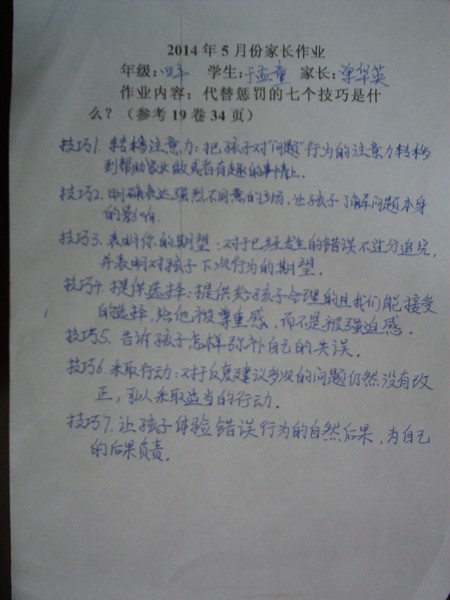 2014年5月份家长作业
年级:四年 学生:于孟童 家长:单华英
作业内容:代替惩罚的七个技巧是什
么?(参考19卷34页)
技巧1. 转移注意力:把孩子对“问题”行为的注意力转移
到帮助家长做或者有趣的事情上.
技巧2. 明确表达强烈不同意的立场,让孩子了解问题本身
的影响.
技巧3. 表明你的期望:对于已经发生的错误不过分追究,
并表明对孩子下次行为的期望.
技巧4. 提供选择:提供给孩子合理的且我们能接受
的选择,给他被尊重感,而不是被强迫感.
技巧5. 告诉孩子怎样弥补自己的失误.
技巧6. 采取行动:对于反复建议多次的问题仍然没有改
正,可以采取适当的行动.
技巧7. 让孩子体验错误行为的自然后果,为自己
的后果负责.